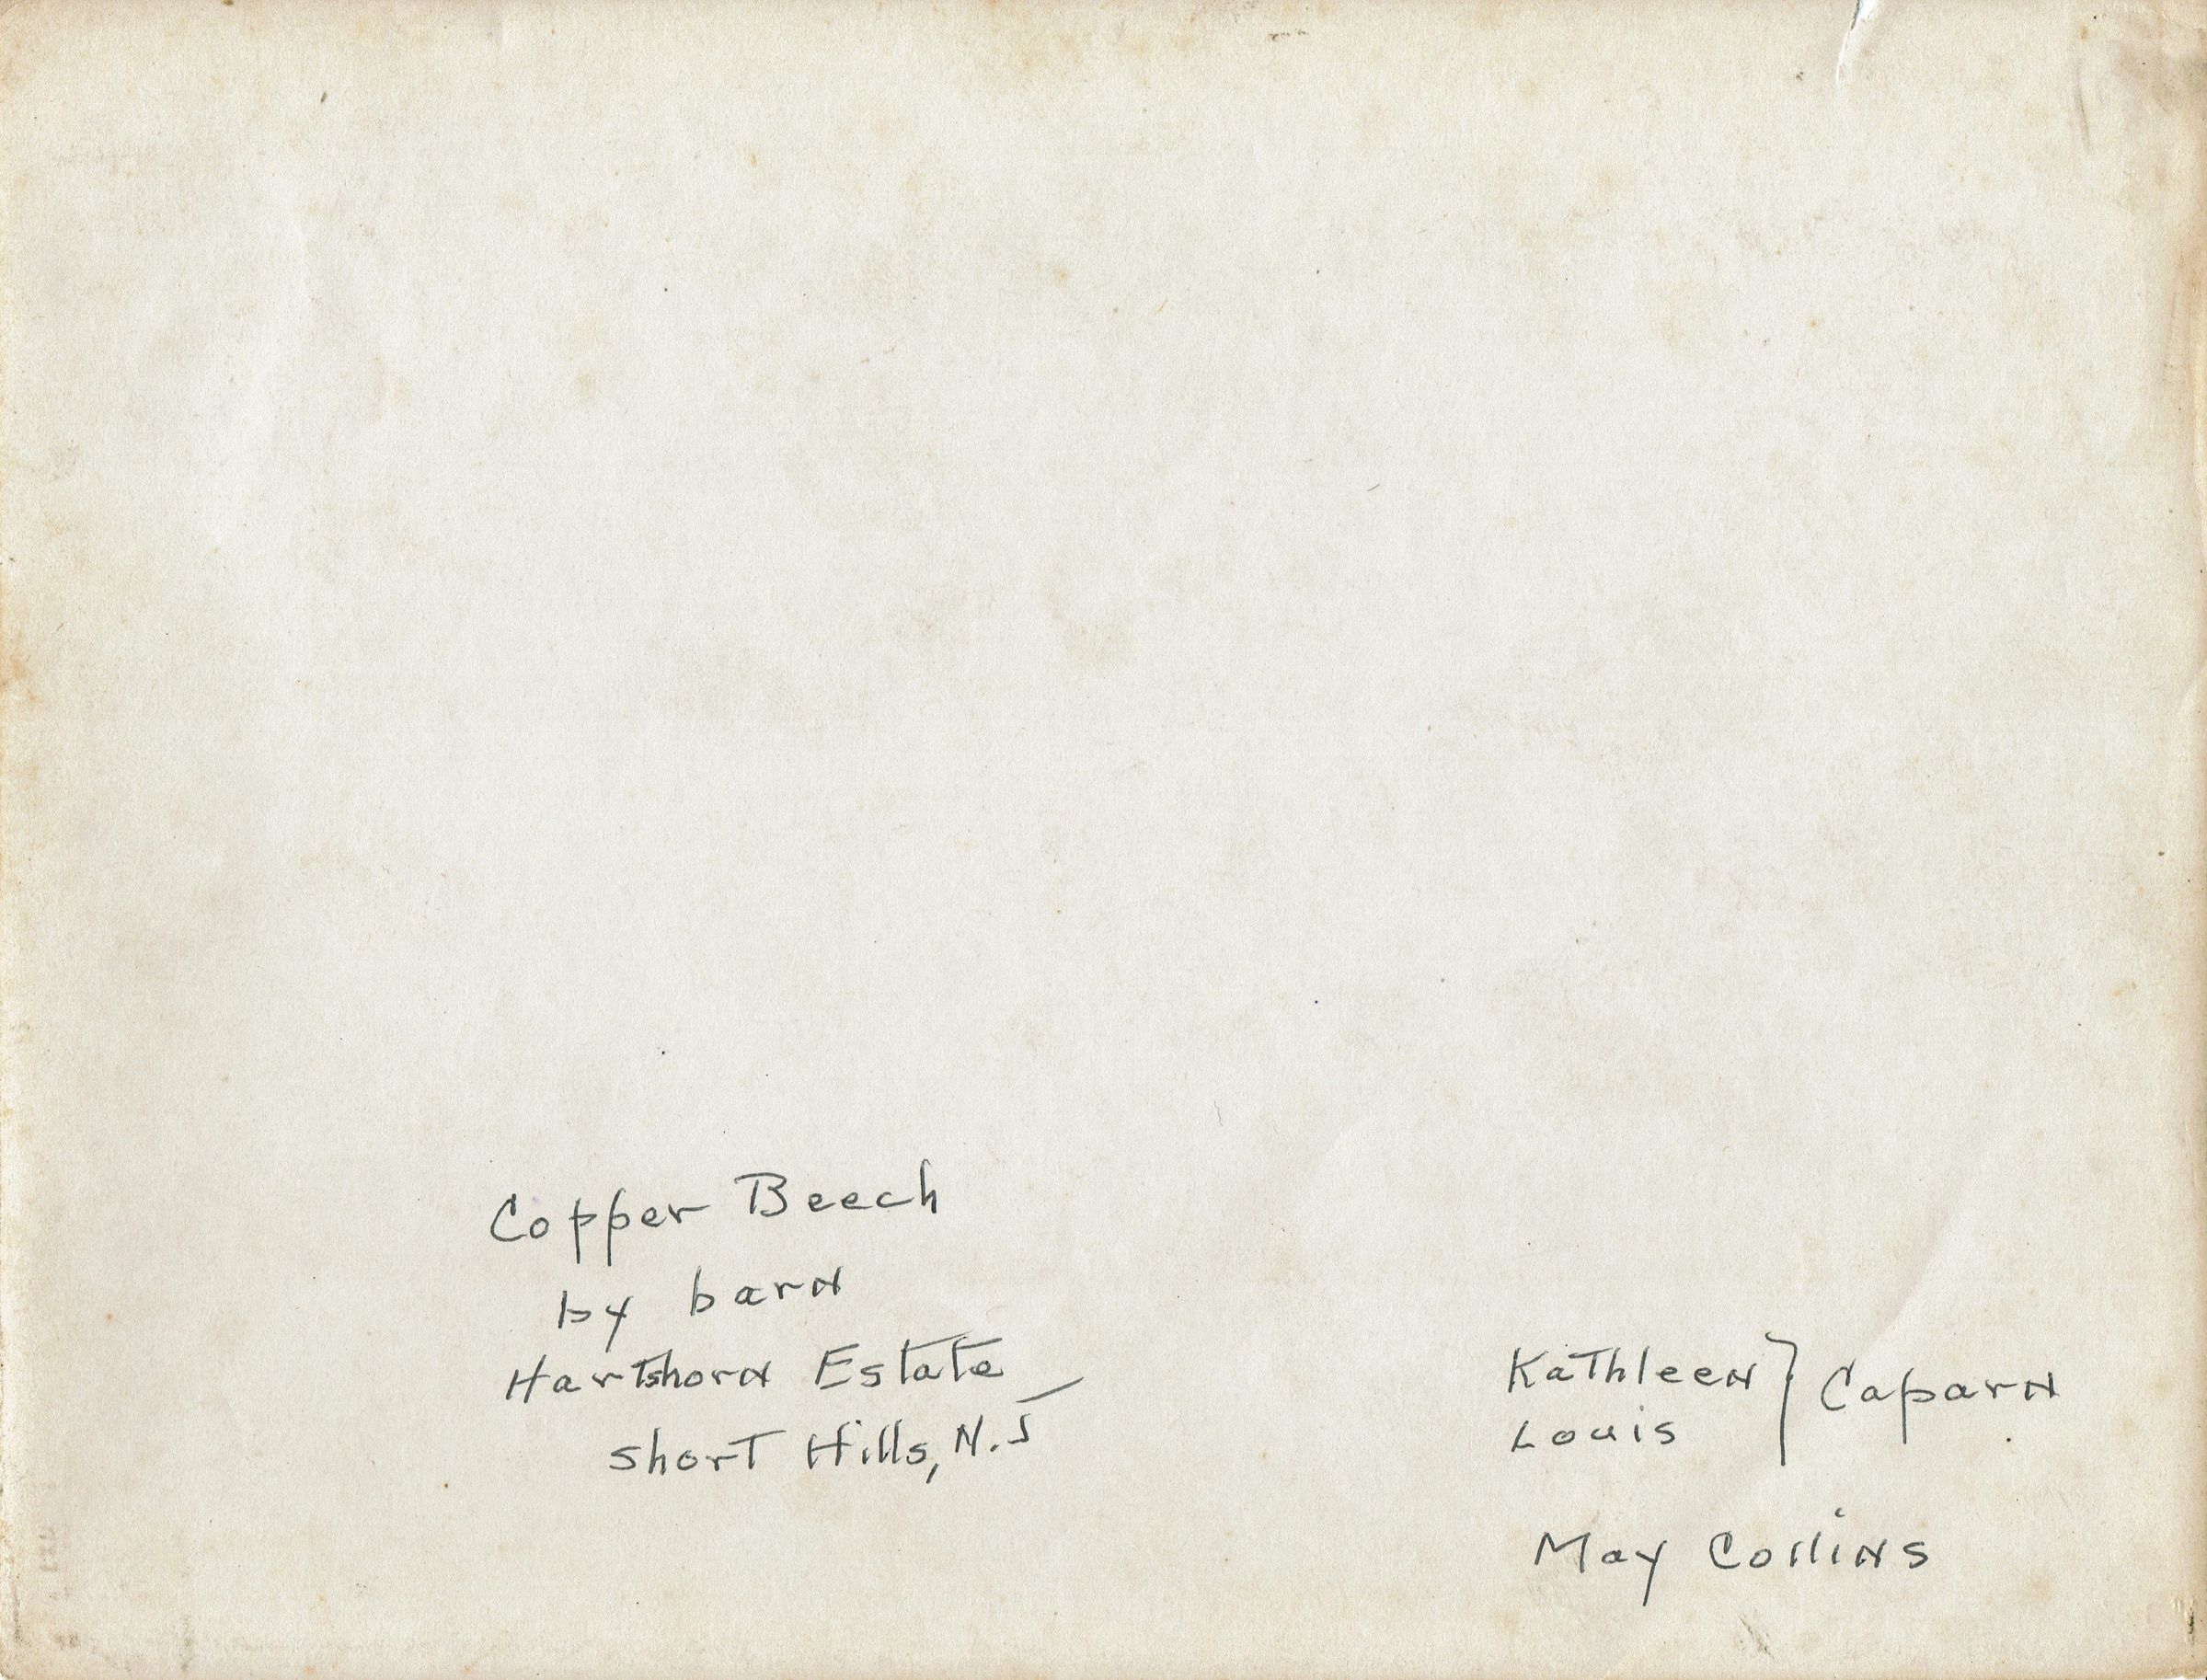 Copper Beech
by barn
Hartshorn Estate
Short Hills, N.J
Kathleen } Caparn
Louis
May Collins